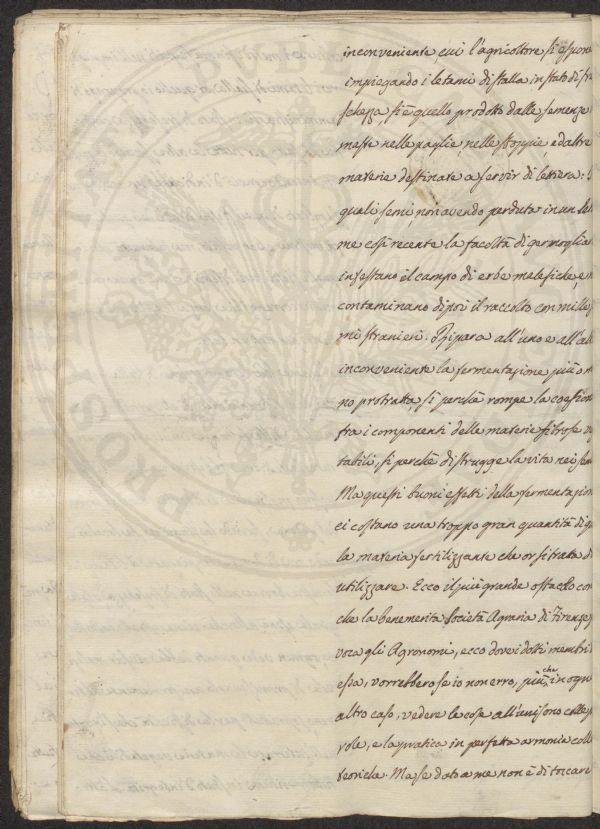 inconveniente, cui l'agricoltore si espone
impiegando i letami di stalla in stato di fre
schezza, si è quello prodotto dalle semenze
meste nelle paglie, nelle stoppie, ed altre
materie destinate a servir di lettiera:
quali semi, non avendo perduta in un let
me così recente la facoltà di germogliar
infestano il campo di erbe malefiche, e
contaminano dipoi il raccolto con mille
mi stranieri. Ripara all'uno e all'al
inconveniente la fermentazione più o m
no protratta, sì perchè rompe la coesion
fra i componenti delle materie fibrose ve
tabili, sì perchè distrugge la vita nei sem
Ma questi buoni effetti della fermentazion
ci costano una troppo gran quantità di q
la materia fertilizzante che or si tratta d
utilizzare. Ecco il più grande ostacolo con
che la benemerita Società Agraria di Firenze
voca gli Agronomi, ecco dove i dotti membri d
essa, vorrebbero se io non erro, più che in ogn
altro caso, vedere le cose all'unisono colle p
role, e la pratica in perfetta armonia coll
teorica. Ma se dato a me non è di toccare